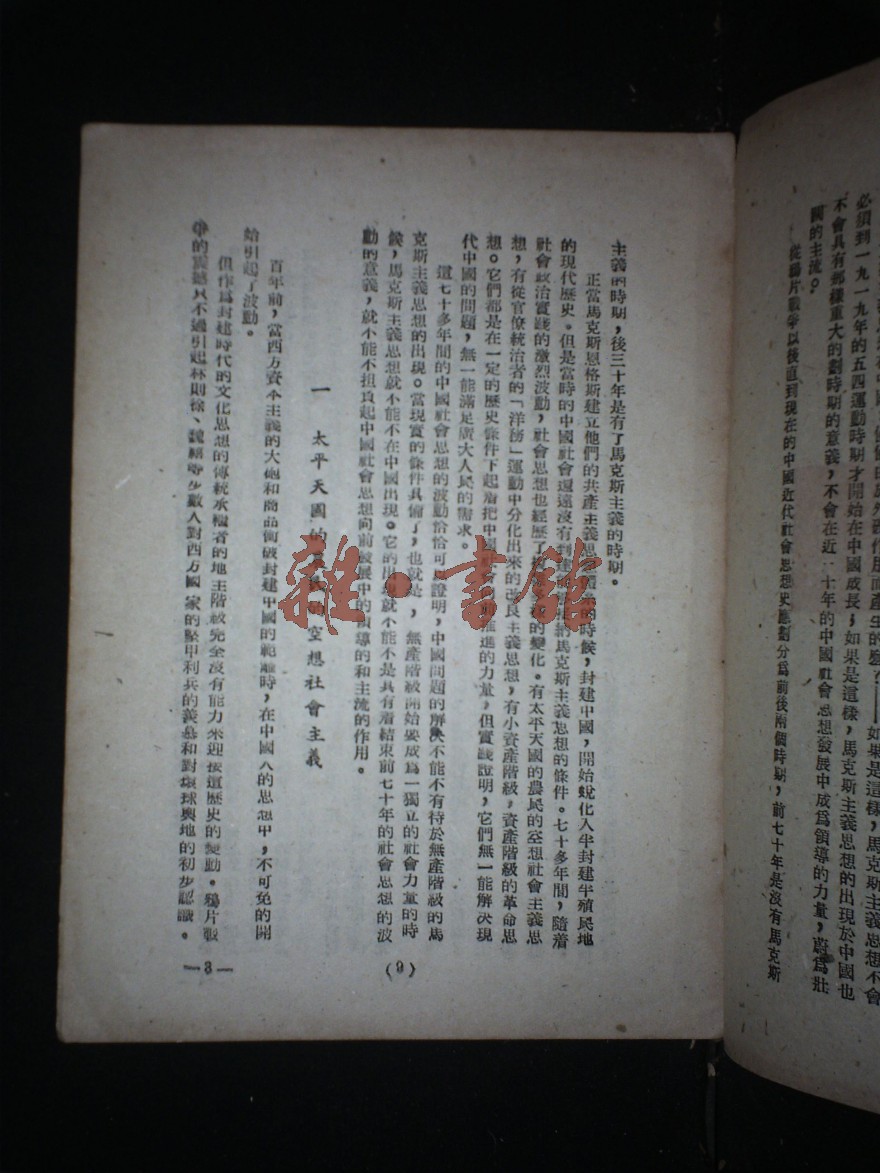 必須到一九一九年的五四運動時期才開始在中國成長；如果是這樣，馬克斯主義思想的出現於中國也
不會具有那樣重大的劃時期的意義，不會在近二十年的中國社會思想發展中成爲領導的力量，蔚爲壯
闊的主流。
從鴉片戰爭以後直到現在的中國近代社會思想史應劃分爲前後兩個時期，前七十年是沒有馬克斯
主義的時期，後三十年是有了馬克斯主義的時期。
正當馬克斯恩格斯建立他們的共產主義思想體系的時候，封建中國，開始蛻化入半封建半殖民地
的現代歷史。但是當時的中國社會還遠沒有到達能接納馬克斯主義思想的條件。七十多年間，隨着
社會政治實踐的激烈波動，社會思想也經歷了的變化。有太平天國的農民的空想社會主義思
想，有從官僚統治者的「洋務」運動中分化出來的改良主義思想，有小資產階級，資產階級的革命思
想。它們都是在一定的歷史條件下起着把中國社會向前推進的力量，但實踐證明，它們無一能解決現
代中國的問題，無一能滿足廣大人民的需求。
這七十多年間的中國社會思想的波動恰恰可以證明，中國問題的解決不能不有待於無產階級的馬
克斯主義思想的出現。當現實的條件具備了，也就是，無產階級開始要成爲一獨立的社會力量的時
候，馬克斯主義思想就不能不在中國出現。它的出現就不能不是具有着結束前七十年的社會思想的波
動的意義，就不能不担負起中國社會思想向前發展中的領導的和主流的作用。
一　太平天國的農民的空想社會主義
百年前，當西方資本主義的大砲和商品衝破封建中國的範籬時，在中國人的思想中，不可免的開
始引起了波動。
但作爲封建時代的文化思想的傳統承襲者的地主階級完全沒有能力來迎接這歷史的變動。鴉片戰
爭的震撼只不過引起林則徐、魏源等少數人對西方國家的堅甲利兵的羨慕和對環球輿地的初步認識。
(9)
—3—
雜·書館